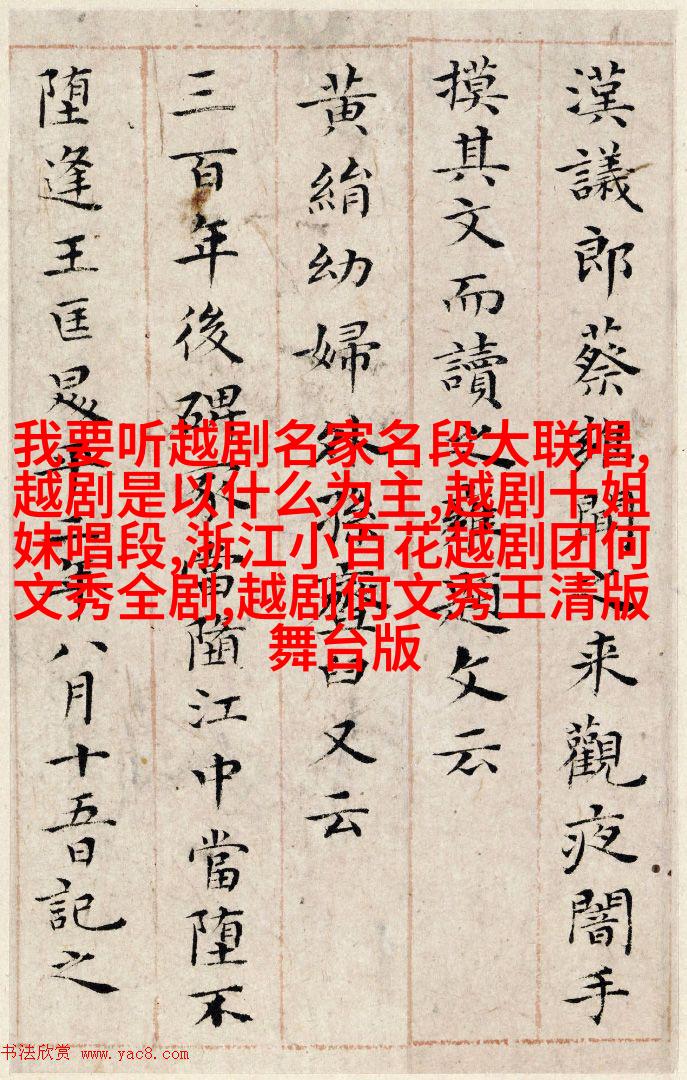 漢議郎蔡雍聞之来觀夜闇手
摸其文而讀之雍題文云
黄絹幼婦外孫韲臼又云
三百年後碑冢當墮江中當堕不
堕逢王叵昇平二年八月十五日記之
我要听越剧名家名段大联唱,
越剧是以什么为主,越剧十姐
妹唱段,浙江小百花越剧团何
文秀全剧,越剧何文秀王清版
舞台版
书法欣赏 www.yac8.com